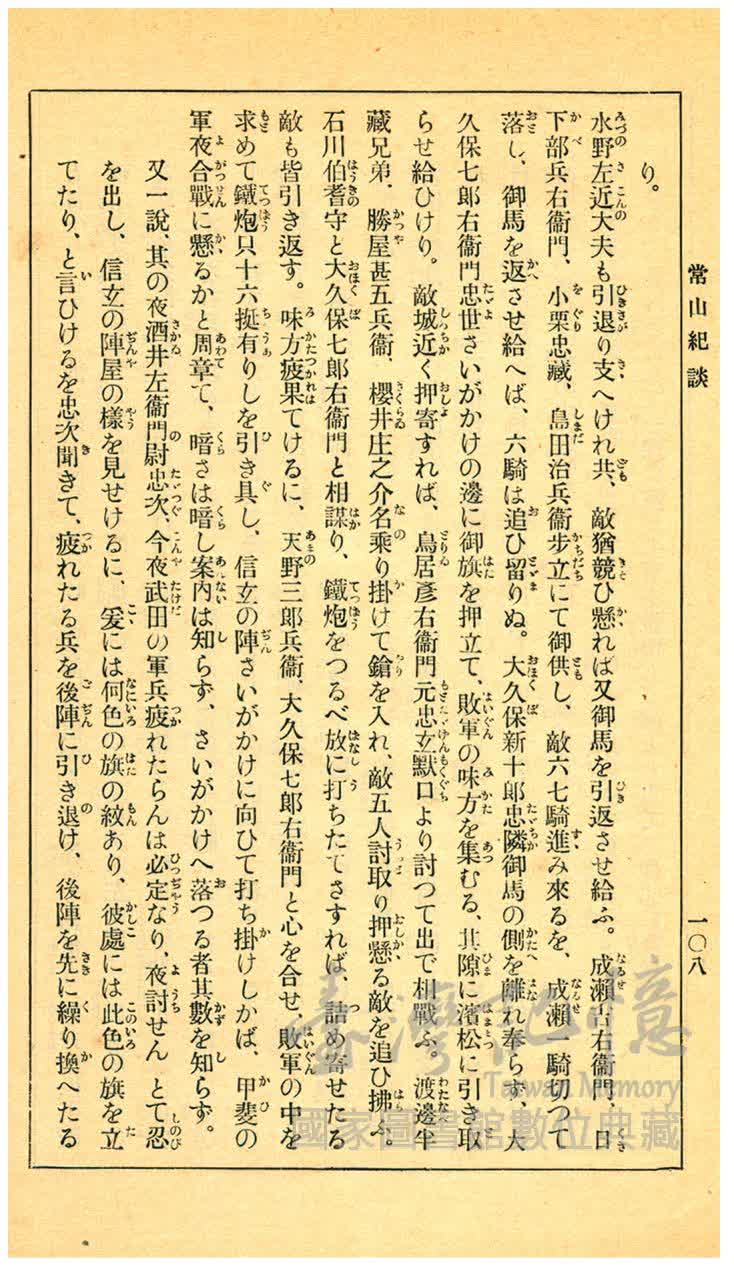 常山紀談
一〇八
り。
水野左近大夫も引退り支へけれ共、敵猶競ひ懸れば又御馬を引返させ給ふ。成瀨吉右衞門、日
下部兵右衞門、小栗忠藏、島田治兵衞步立にて御供し、敵六七騎進み來るを、成瀨一騎切つて
落し、御馬を返させ給へば、六騎は追ひ留りぬ。大久保新十郞忠隣御馬の側を離れ奉らず、大
久保七郞右衞門忠世さいがかけの邊に御旗を押立て、敗軍の味方を集むる、其隙に濱松に引き取
らせ給ひけり。敵城近く押寄すれば、鳥居彥右衞門元忠玄默口より討つて出で相戰ふ。渡邊半
藏兄弟、勝屋甚五兵衞、櫻井庄之介名乘り掛けて鎗を入れ、敵五人討取り押懸る敵を追ひ拂ふ。
石川伯耆守と大久保七郞右衞門と相謀り、鐵炮をつるべ放に打ちたてさすれば、詰め寄せたる
敵も皆引き返す。味方疲果てけるに、天野三郞兵衞、大久保七郞右衞門と心を合せ、敗軍の中を
求めて鐵炮只十六挺有りしを引き具し、信玄の陣さいがかけに向ひて打ち掛けしかば、甲斐の
軍夜合戰に懸るかと周章て、暗さは暗し案內は知らず、さいがかけへ落つる者其數を知らず。
又一說、其の夜酒井左衞門尉忠次、今夜武田の軍兵疲れたらんは必定なり、夜討せん とて忍
を出し、信玄の陣屋の樣を見せけるに、爰には何色の旗の紋あり、彼處には此色の旗を立
てたり、と言ひけるを忠次聞きて、疲れたる兵を後陣に引き退け、後陣を先に繰り換へたる
臺灣記憶
Taiwan Memory
國家圖書館數位典藏